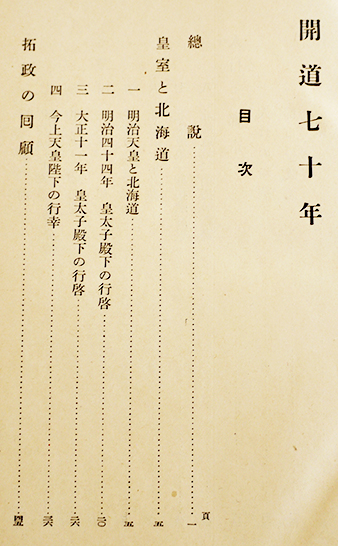 開道七十年
目次
頁
總說……一
皇室と北海道……五
一 明治天皇と北海道……五
二 明治四十四年 皇太子殿下の行啓……二〇
三 大正十一年 皇太子殿下の行啓……
四 今上天皇陛下の行幸……
拓政の回顧……